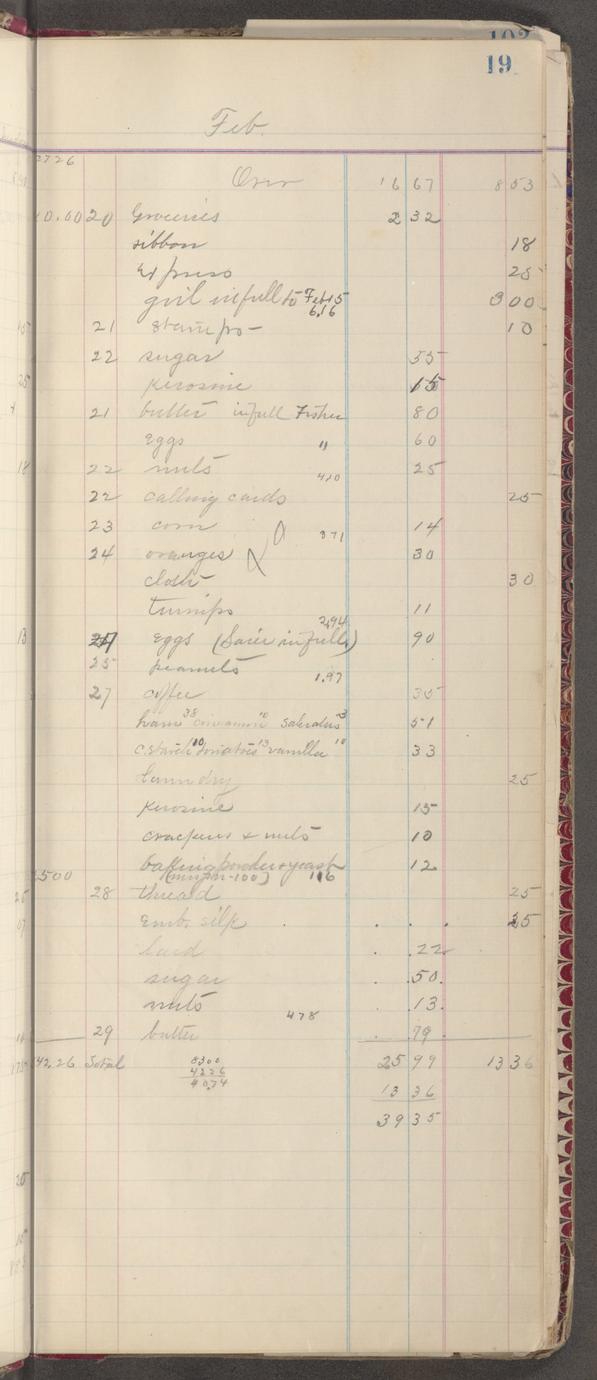 19
Feb.
2726
Over 16 67 8 53
10.60 20 Groceries 2 32
ribbon 18
Express 25
girl in full to Feb 15 3 00
6.16
21 stamps 10
22 sugar 55
kerosine 15
21 butter in full Fisher 80
eggs " 60
22 nuts 25
410
22 calling cards 25
23 corn 14
371
24 oranges 30
cloth 30
turnips 11
2.94
27 eggs (in full) 90
25 peanuts
1.97
27 coffee 35
ham 38 cinnamon 10 saleratus 3 51
c. starch 10 tomatoes 13 vanilla 10 33
laundry 25
kerosine 15
crackers & nuts 10
baking powder & yeast 12
1500 116
28 thread 25
Emb. silk 25
lard 22
sugar 50
nuts 13
478
29 butter 79
42.26 Total 25 99 13 36
8300
4226
4074
13 36
39 35